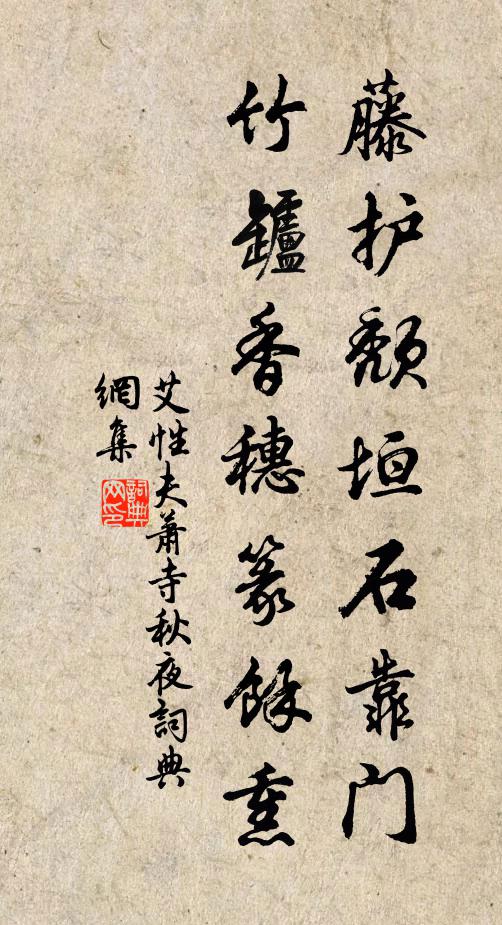 藤护颓垣石靠门
竹罏香穗篆餘熏
艾性夫萧寺秋夜詞典
網集
詞典
网印